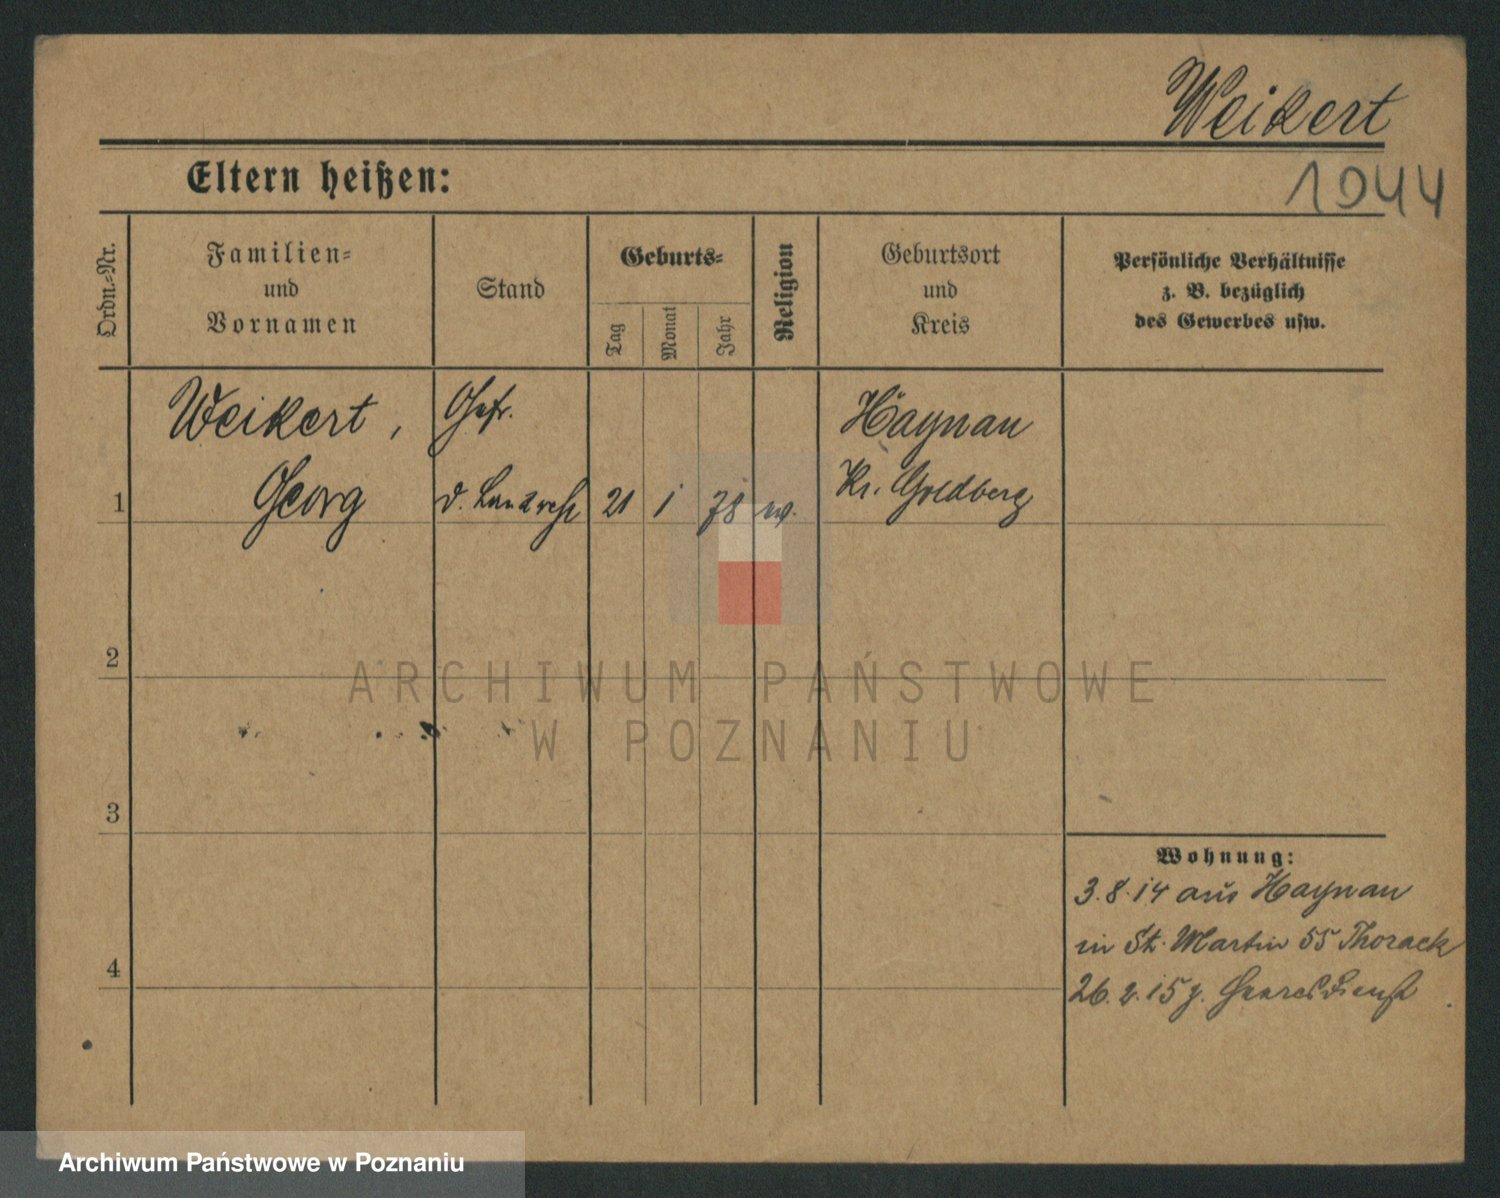 Weikert
1944
Eltern heißen:
Ordn.-Nr.
Familien-
und
Vornamen
Stand
Geburts-
Tag
Monat
Jahr
Religion
Geburtsort
und
Kreis
Persönliche Verhältnisse
z. B. bezüglich
des Gewerbes usw.
Weikert, Gefr. Haynau
1 Georg d. Landwehr 21 1 78 Kr. Goldberg
2
ARCHIWUM PAŃSTWOWE
W POZNANIU
3
Wohnung:
3.8.14 aus Haynau
in St. Martin 55 Thorack
4
26.2.15 z. Heeresdienst
Archiwum Państwowe w Poznaniu